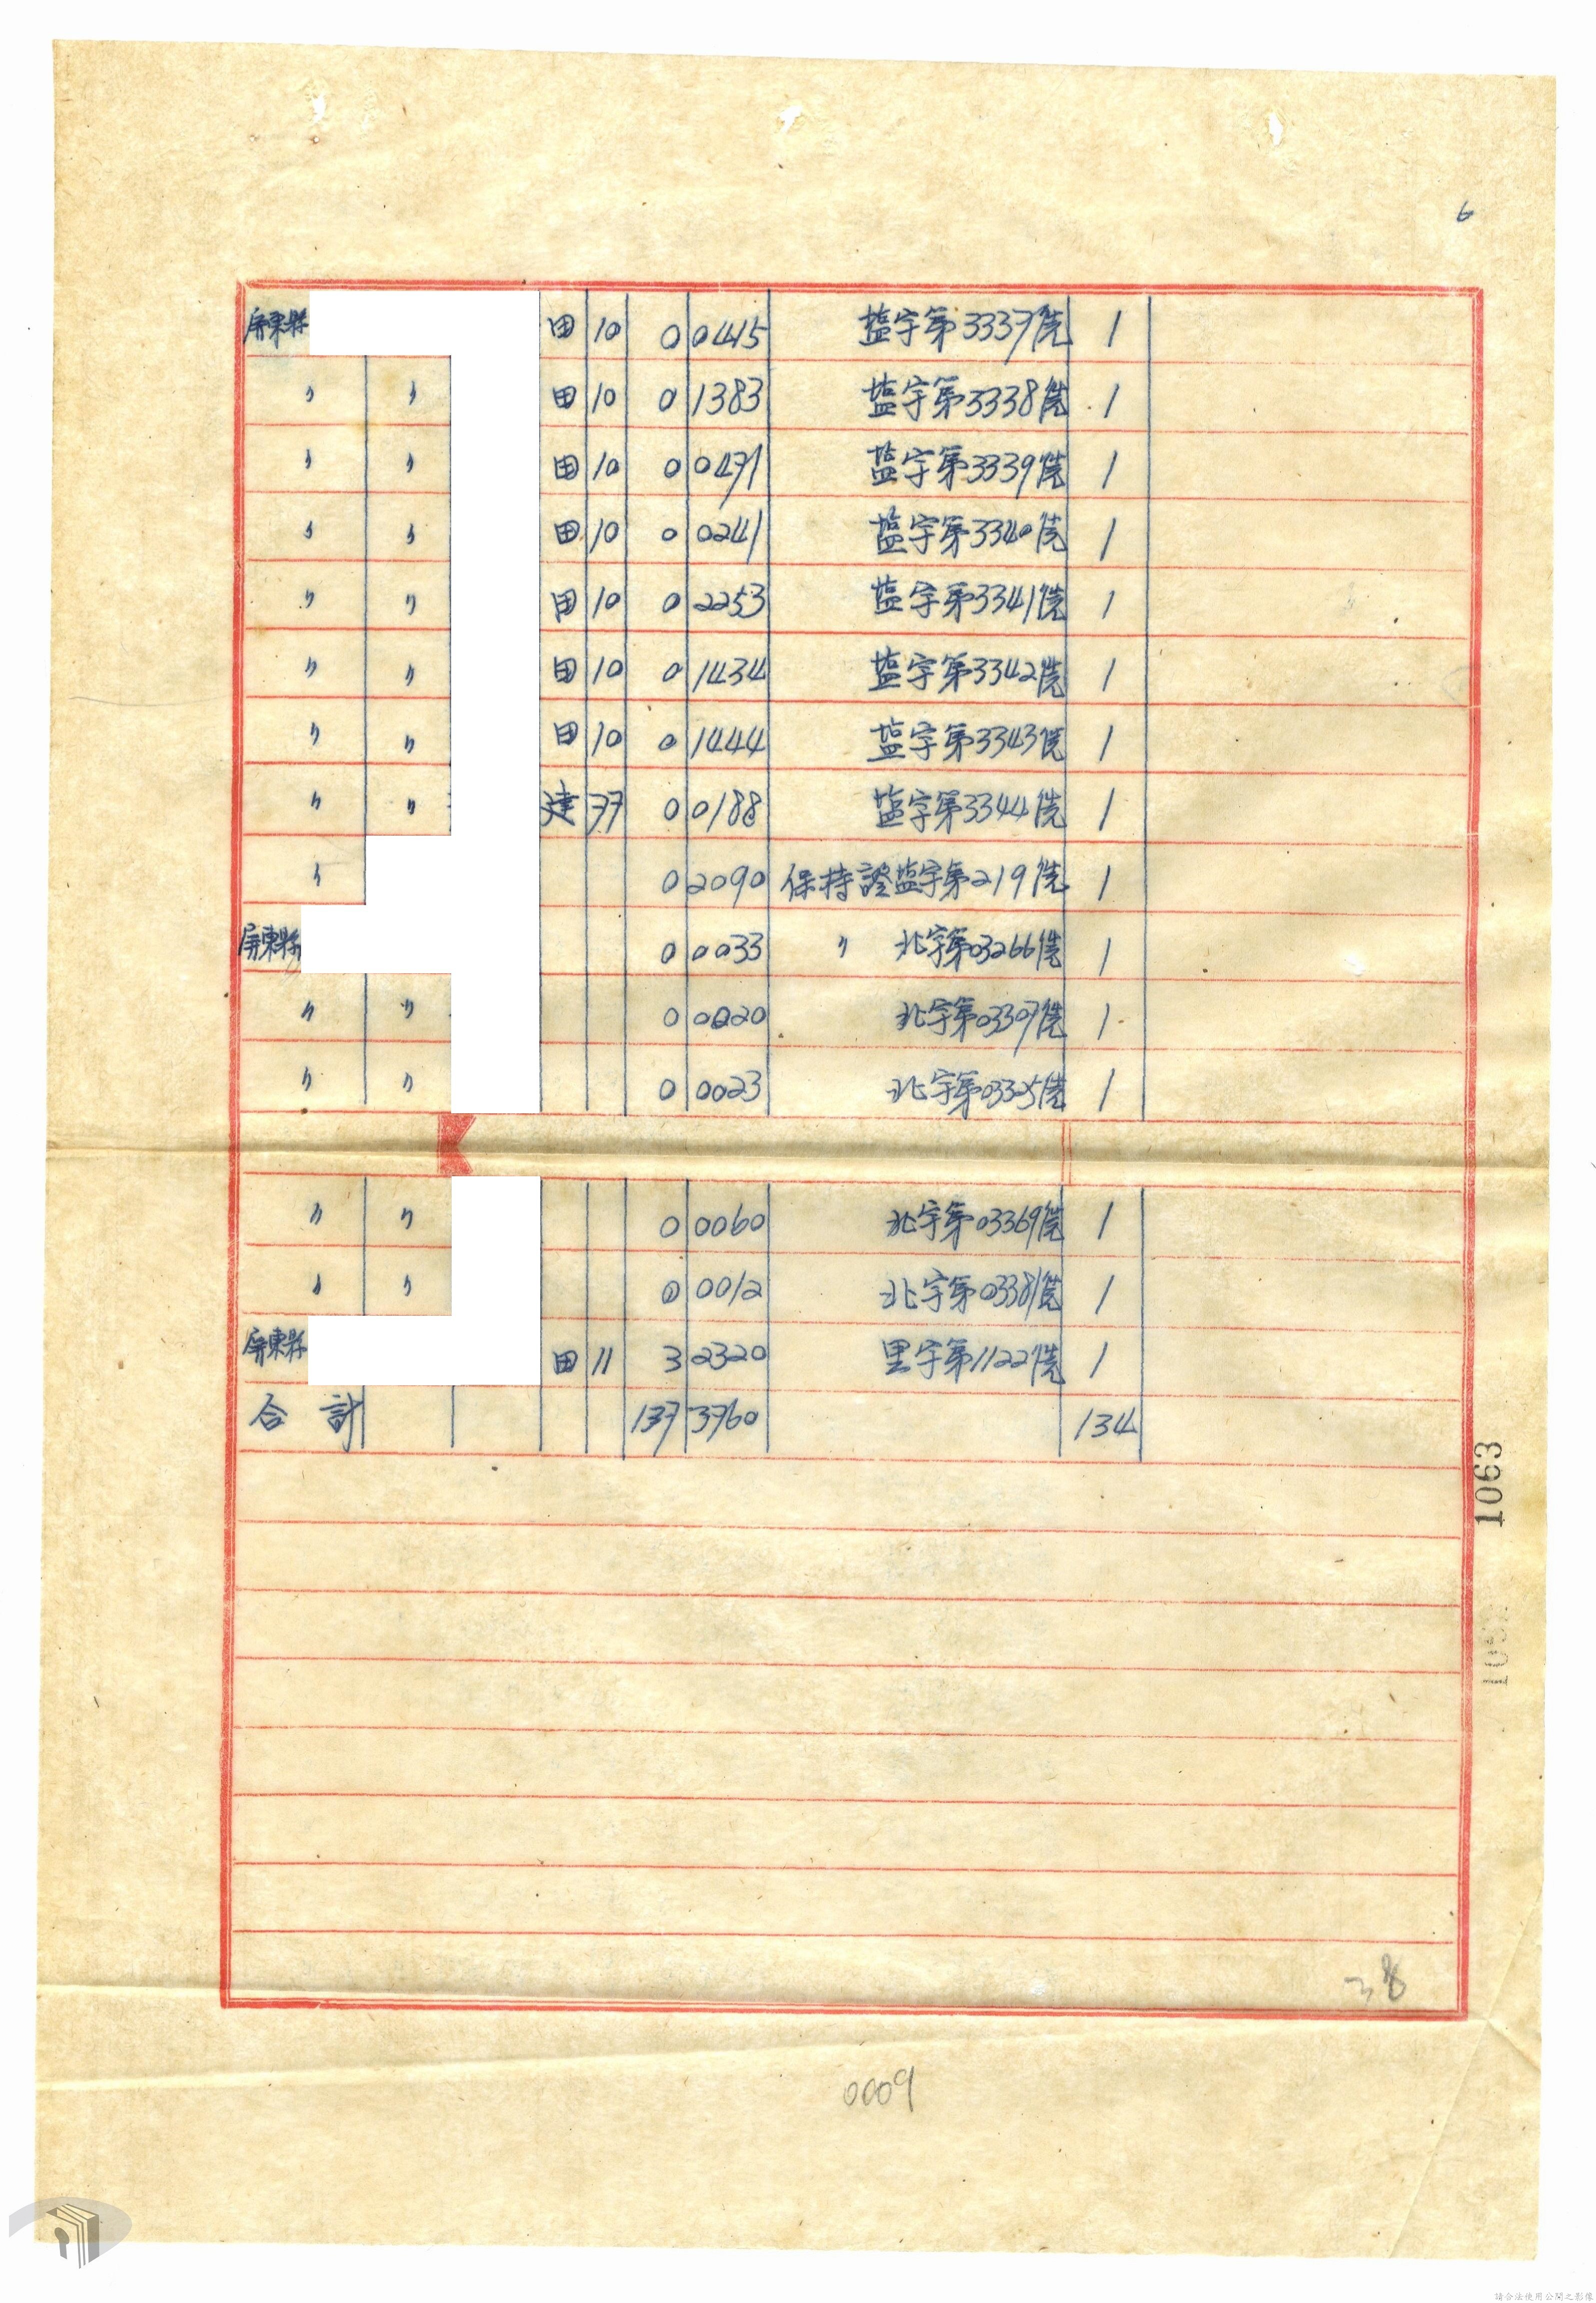 6
屏東縣 田 10 0 0415 塩字第3337號 1
〃 〃 田 10 0 1383 塩字第3338號 1
〃 〃 田 10 0 0471 塩字第3339號 1
〃 〃 田 10 0 0241 塩字第3340號 1
〃 〃 田 10 0 2253 塩字第3341號 1
〃 〃 田 10 0 1434 塩字第3342號 1
〃 〃 田 10 0 1444 塩字第3343號 1
〃 〃 建 77 0 0188 塩字第3344號 1
〃 0 2090 保持證塩字第219號 1
屏東縣 0 0033 〃 北字第03266號 1
〃 〃 0 0020 北字第03307號 1
〃 〃 0 0023 北字第03325號 1
〃 〃 0 0060 北字第03369號 1
〃 〃 0 0012 北字第03381號 1
屏東縣 田 11 3 2320 里字第1122號 1
合計 137 3760 134
1063
38
0009
請合法使用公開之影像